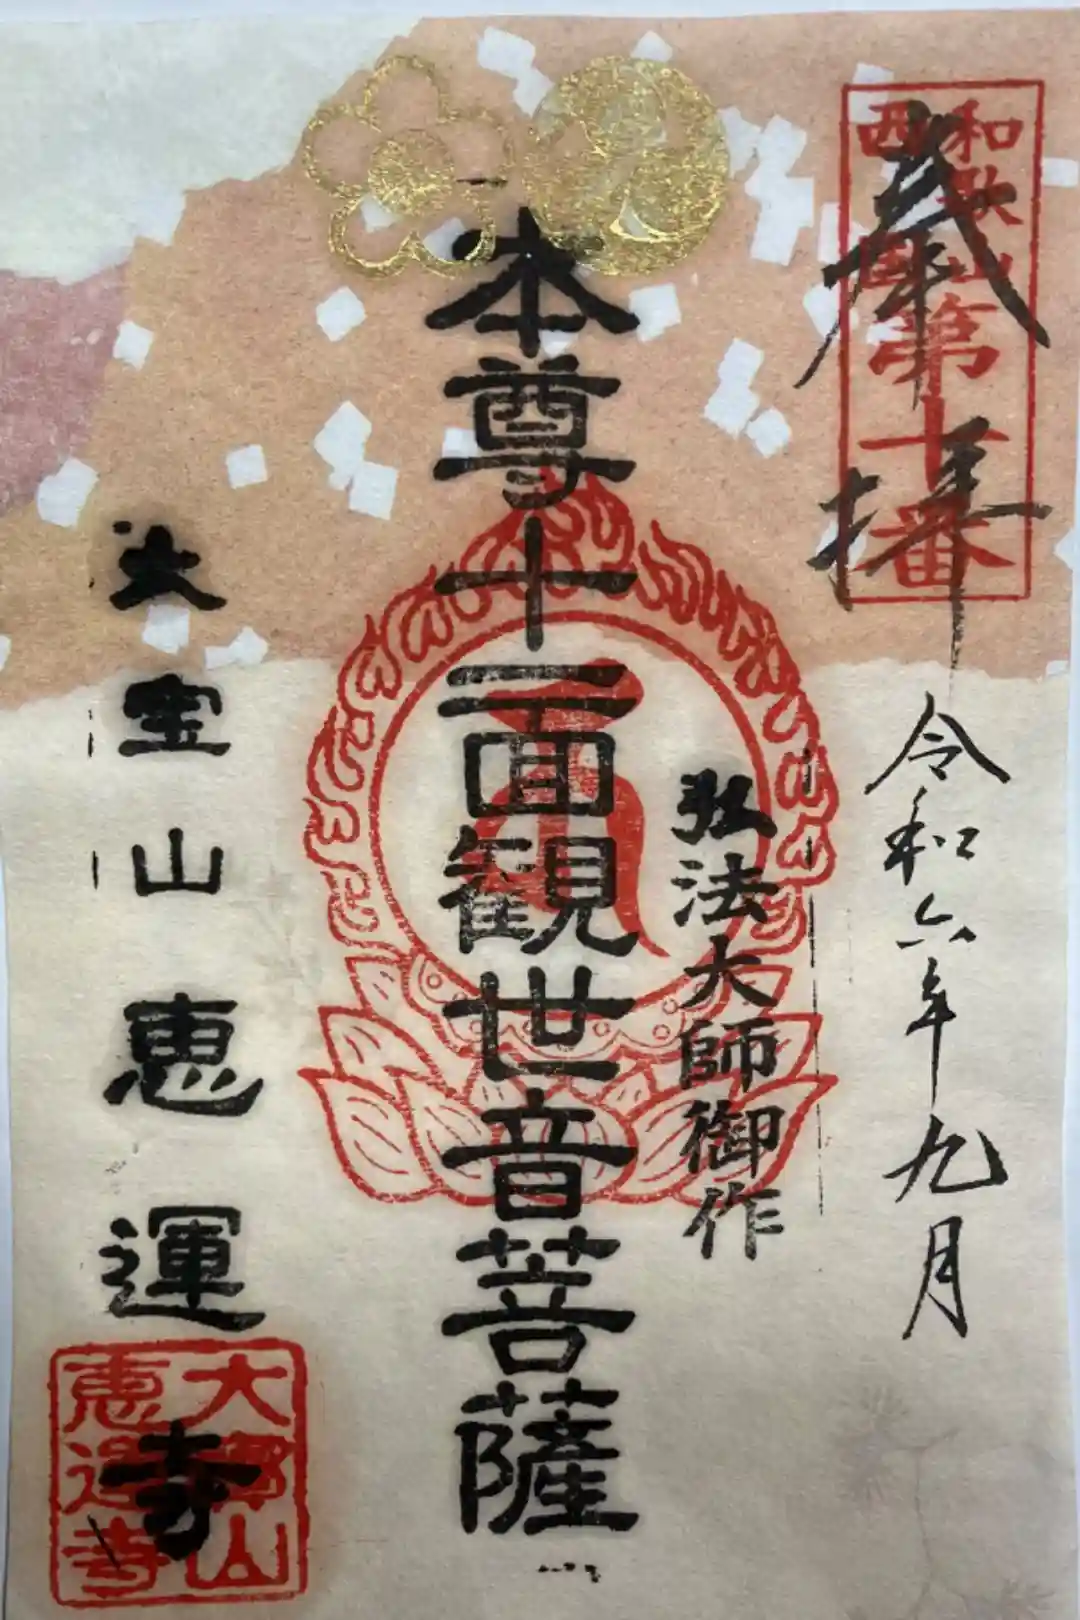 奉拝
令和六年九月
和歌山西国
第十番
弘法大師御作
本尊十一面観世音菩薩
大宝山恵運寺
大寶山
恵運寺